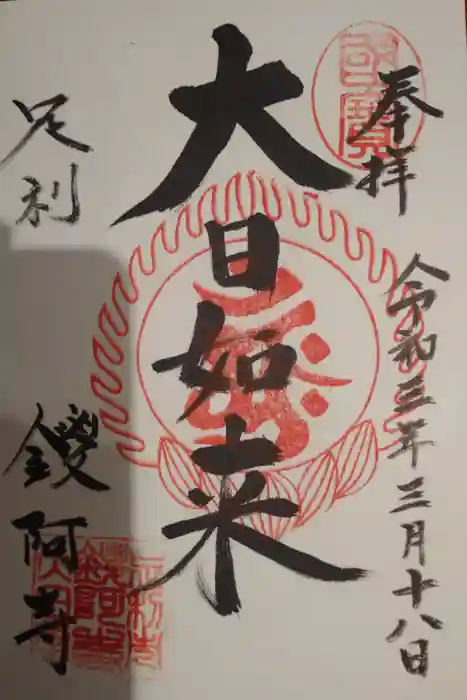 奉拝
令和三年三月十八日
大日如来
足利
鑁阿寺